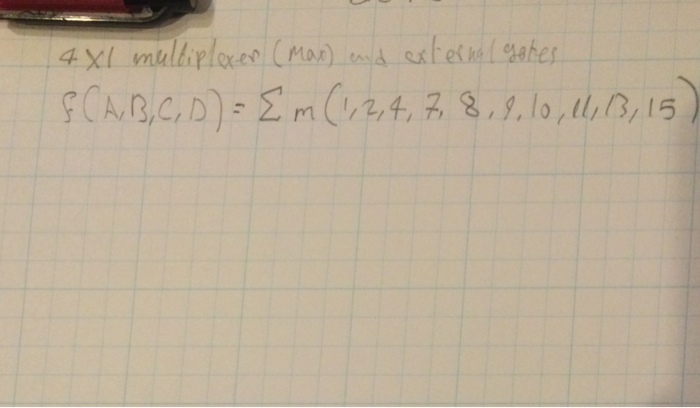 4 X 1 multiplexer (Max) and external gates
f(A,B,C,D) = Σ m (1,2,4,7,8,9,10,11,13,15)